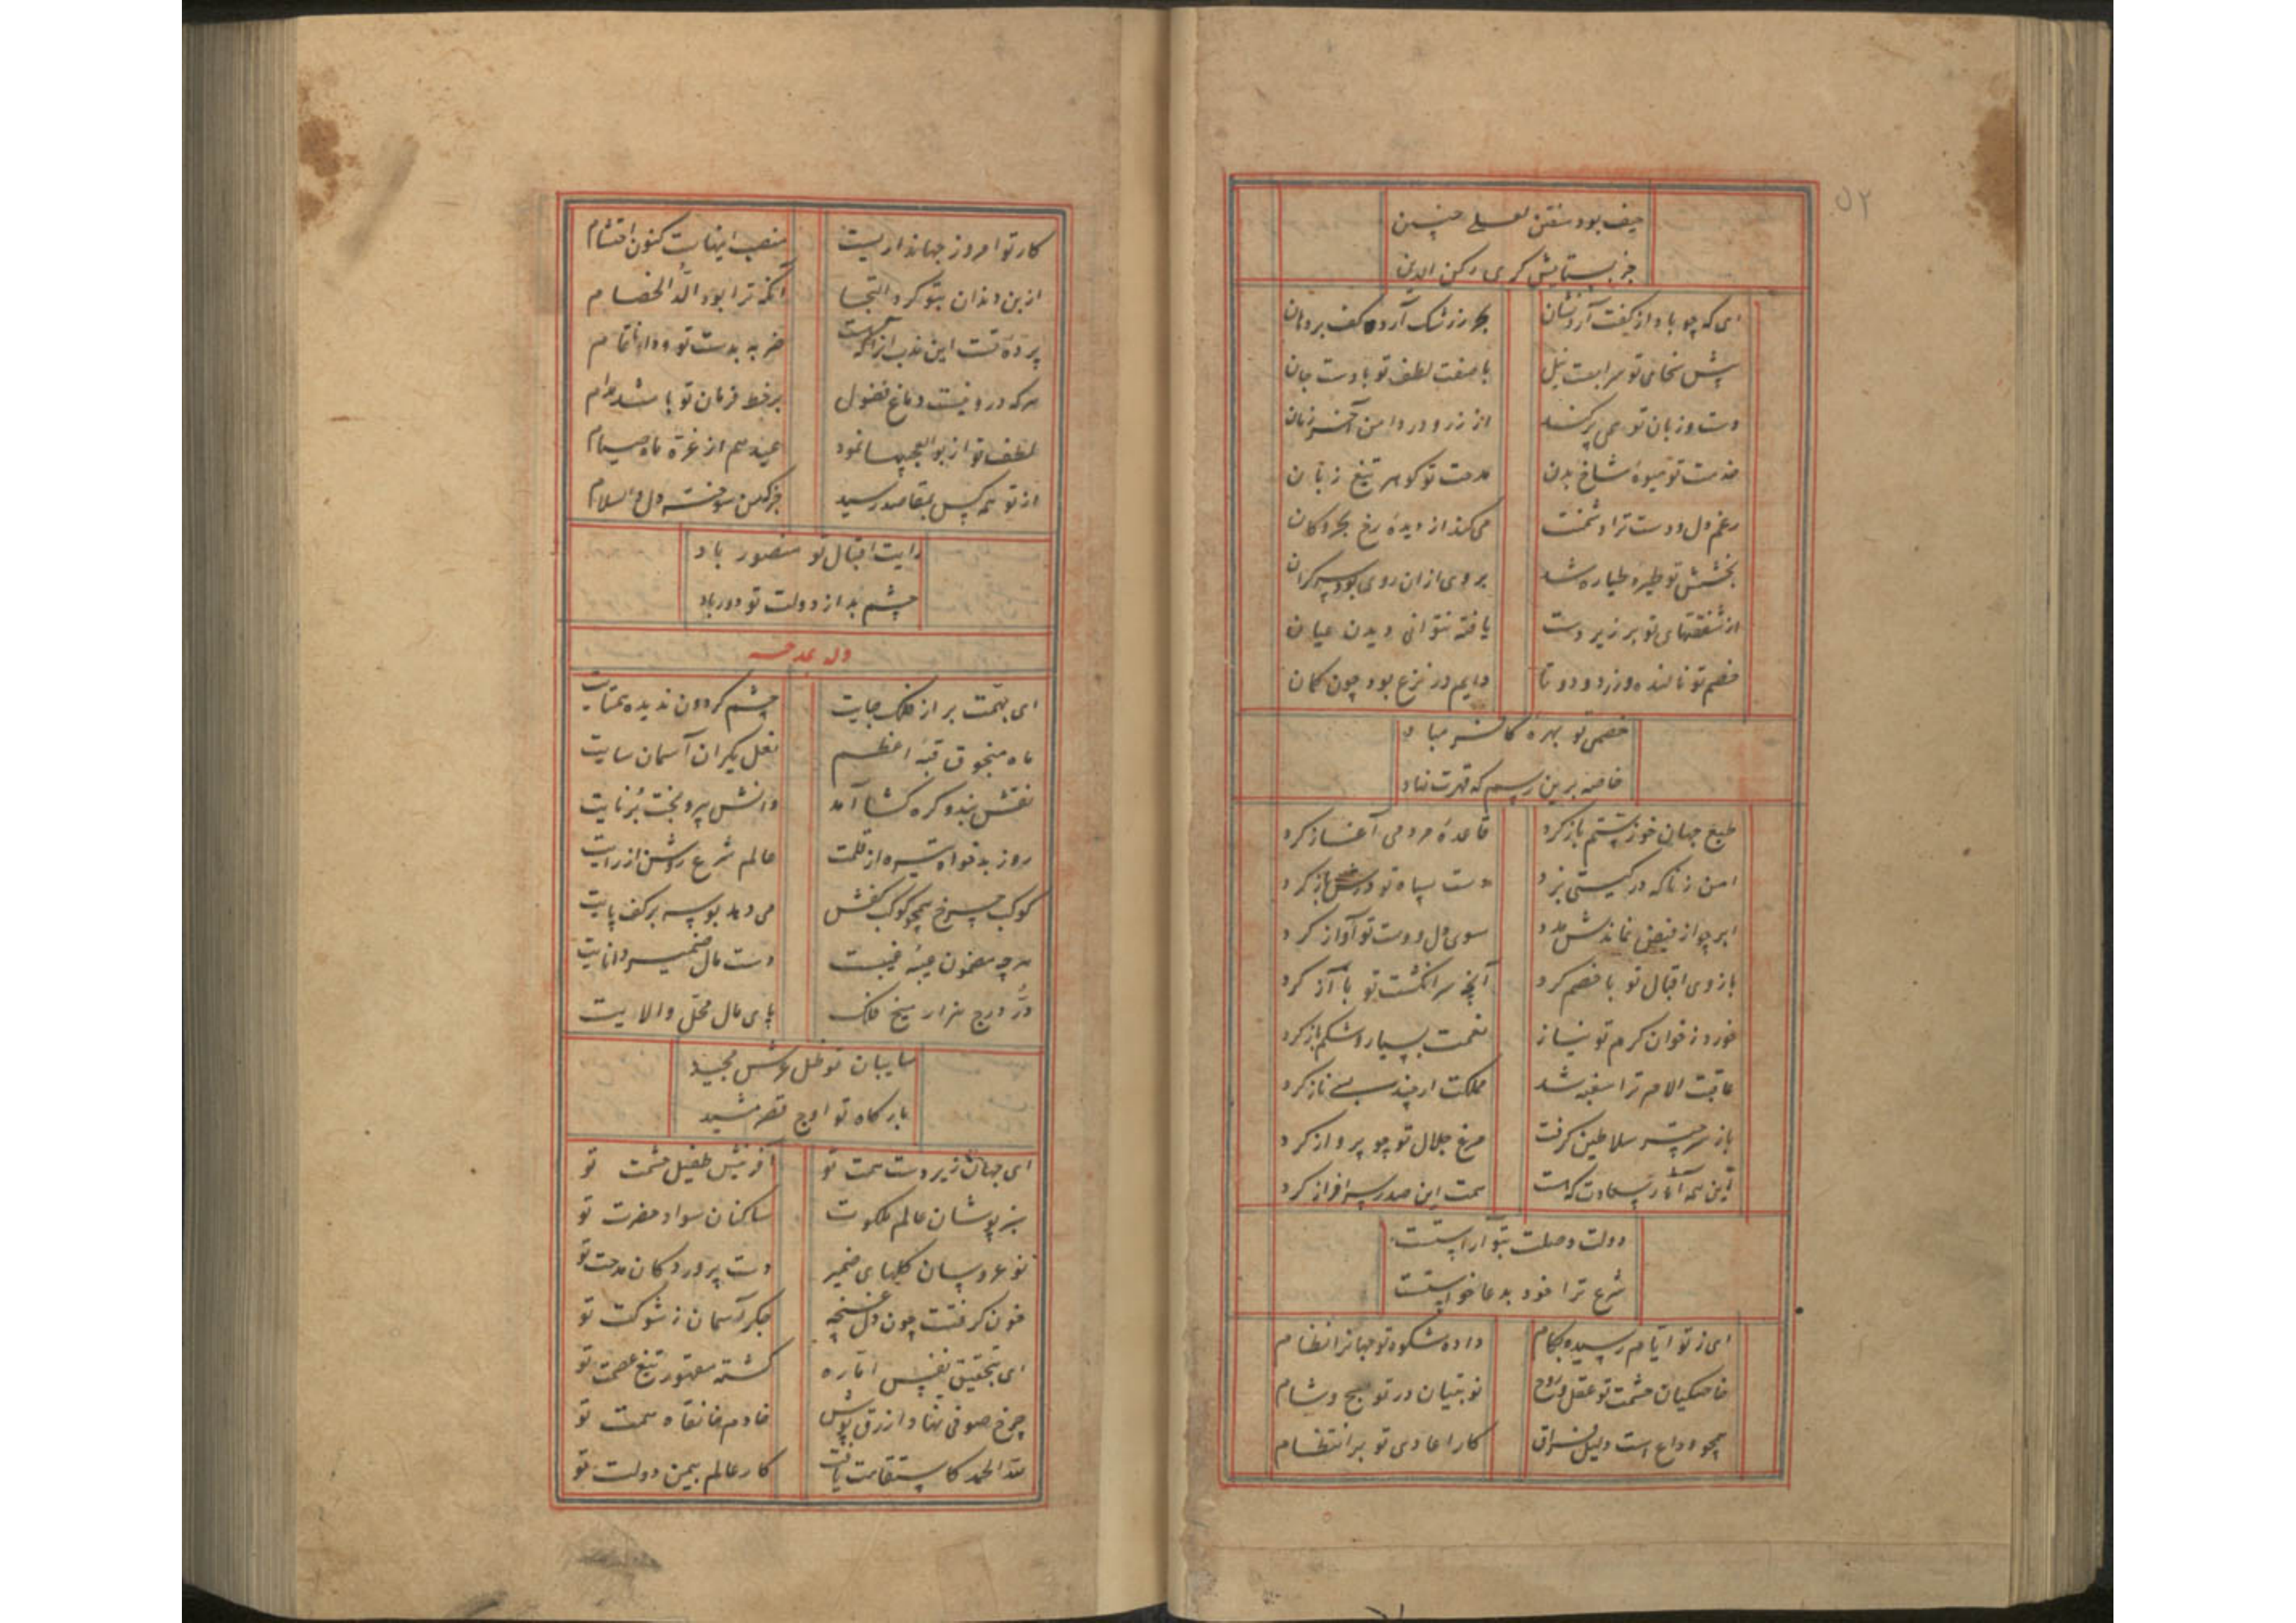 ۵۲
حیف بود سفتن لعلی چنین
جز بستایش گری رکن الدین
ای که چو باد از کفت آرد نشان بحر ز رشک آرد کف بر دهان
پیش سخای تو سرابست نیل با صفت لطف تو بادست جان
دست و زبان تو همی پر کند از زر و در دامن آخر زمان
خدمت تو میوهٔ شاخ بدن مدحت تو گوهر تیغ زبان
رغم دل و دست ترا دشمنت می کند از دیده رخ بحر و کان
بخشش تو طیرهٔ طیاره شد بر وی از آن روی بود سر گران
از شفقتهای تو بر زیر دست یافته نتوانی دیدن عیان
خصم تو نالنده و زرد و دوتا دایم در نزع بود چون کمان
خصمی تو بهرهٔ کافر مباد
خاصه برین رسم که قهرت نهاد
طبع جهان خوز ستم باز کرد قاعدهٔ مردمی آغاز کرد
امن زناکه در گیتی بزد دست سپاه تو درش باز کرد
ابر چو از فیض نماندش مدد سوی دل و دست تو آواز کرد
بازوی اقبال تو با خصم کرد آنچه سر انگشت تو با آز کرد
خورد ز خوان کرم تو نیاز نعمت بسیار اشکم باز کرد
عاقبت الامر ترا سغبه شد مملکت ار چند بسی ناز کرد
باز سر چتر سلاطین گرفت مرغ جلال تو چو پرواز کرد
این همه آثار سعادت که هست همت این صدر سرافراز کرد
دولت وصلت بتو آراستست
شرع ترا خود بدعا خواستست
ای ز تو ایام رسیده بکام داده شکوه تو جهانرا نظام
خاصگیان حشمت تو عقل و روح نوبتیان در تو صبح و شام
همچو وداع است دلیل فراق کار اعادی تو بر انتظام
کار تو امروز جهانداریست منصب اینهات کنون احتشام
از بن دندان بتو کرد التجا آنکه ترا بود الدّ الخصام
پردهٔ تست این ندب از آنکه هست ضربه بدست تو و داو تمام
هر که درو نیست دماغ فضول بر خط فرمان تو باشد مدام
لطف تو از بوالعجبیها نمود عید هم از غرهٔ ماه صیام
از تو همه کس بمقاصد رسید جز که من سوخته دل والسلام
رایت اقبال تو منصور باد
چشم بد از دولت تو دور باد
وله یمدحه
ای بهمت بر از فلک جایت چشم گردون ندیده همتایت
ماه منجوق قبهٔ اعظم نعل یکران آسمان سایت
نقش بند و گره گشا آمد دانش پیر و بخت برنایت
روز بدخواه تیره از قلمت عالم شرع روشن از رایت
کوکب چرخ همچو کوکب کفش می دهد بوسه بر کف پایت
هر چه مضمون عیبهٔ غیبست دست مال ضمیر دانایت
دُرّ درج هزار میخ فلک پای مال محل والایت
سایبان تو ظل عرش مجید
بارگاه تو اوج قصر مشید
ای جهان زیر دست همت تو آفرینش طفیل حشمت تو
سبز پوشان عالم ملکوت ساکنان سواد حضرت تو
نوعروسان کلهای ضمیر دست پروردگان مدحت تو
خون گرفتست چون دل غنچه جگر آسمان ز شوکت تو
ای بتحقیق نفس اماره کشته مقهور تیغ عصمت تو
چرخ صوفی نهاد ازرق پوش خادم خانقاه همت تو
لله الحمد کاستقامت یافت کار عالم بیمن دولت تو